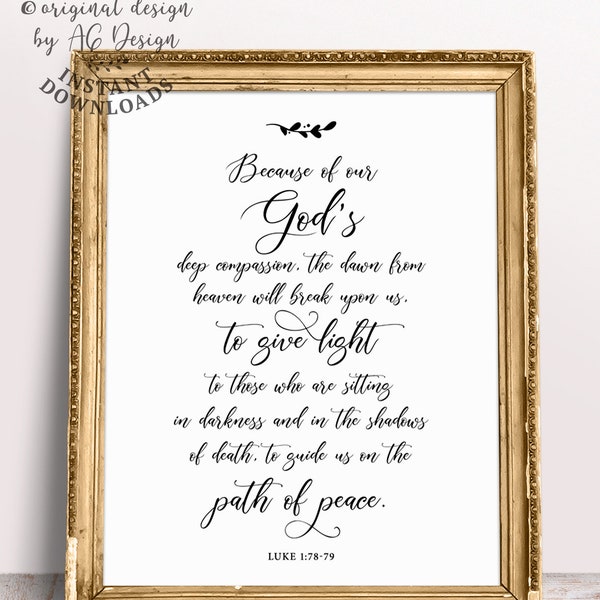 ©original design
by AG Design
INSTANT
DOWNLOADS
Because of our
God's
deep compassion, the dawn from
heaven will break upon us,
to give light
to those who are sitting
in darkness and in the shadows
of death, to guide us on the
path of peace.
LUKE 1:78-79